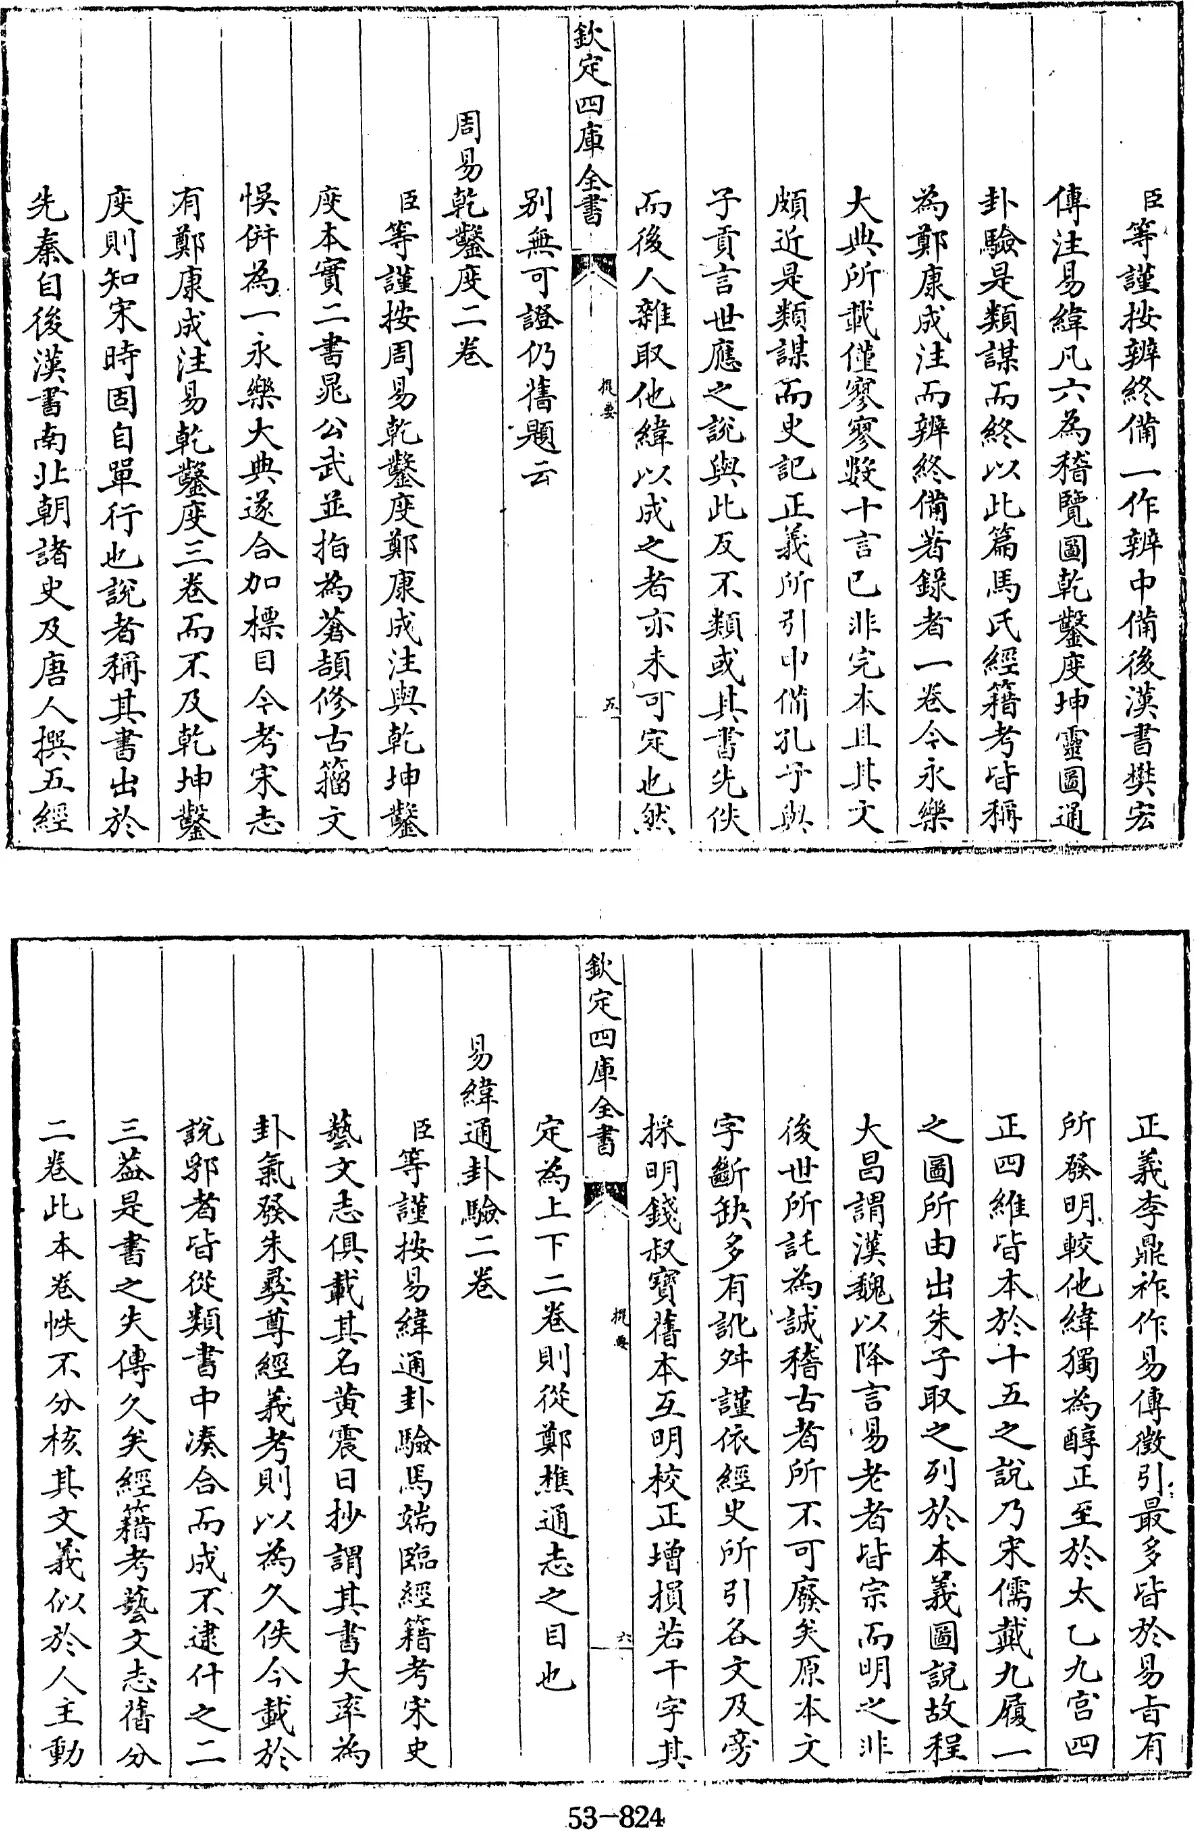 臣等謹按辨終備一作辨中備後漢書樊宏
傳注易緯凡六為稽覽圖乾鑿度坤靈圖通
卦驗是類謀而終以此篇馬氏經籍考皆稱
為鄭康成注而辨終備著錄者一卷今永樂
大典所載僅寥寥數十言已非完本且其文
頗近是類謀而史記正義所引中備孔子與
子貢言世應之說與此反不類或其書先佚
而後人雜取他緯以成之者亦未可定也然
欽定四庫全書 提要 五
別無可證仍舊題云
周易乾鑿度二卷
臣等謹按周易乾鑿度鄭康成注與乾坤鑿
度本實二書晁公武並指為蒼頡修古籀文
悞併為一永樂大典遂合加標目今考宋志
有鄭康成注易乾鑿度三卷而不及乾坤鑿
度則知宋時固自單行也說者稱其書出於
先秦自後漢書南北朝諸史及唐人撰五經
正義李鼎祚作易傳徵引最多皆於易旨有
所發明較他緯獨為醇正至於太乙九宫四
正四維皆本於十五之說乃宋儒戴九履一
之圖所由出朱子取之列於本義圖說故程
大昌謂漢魏以降言易老者皆宗而明之非
後世所託為誠稽古者所不可廢矣原本文
字斷缺多有訛舛謹依經史所引各文及旁
採明錢叔寶舊本互明校正增損若干字其
欽定四庫全書 提要 六
定為上下二卷則從鄭樵通志之目也
易緯通卦驗二卷
臣等謹按易緯通卦驗馬端臨經籍考宋史
藝文志俱載其名黄震日抄謂其書大率為
卦氣發朱彝尊經義考則以為久佚今載於
說郛者皆從類書中湊合而成不逮什之二
三葢是書之失傳久矣經籍考藝文志舊分
二卷此本卷帙不分核其文義似於人主動
53-824